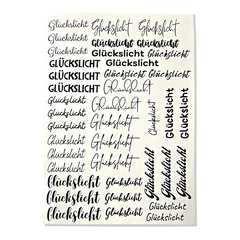 Glückslicht Glückslicht
Glückslicht Glückslicht
Glückslicht Glückslicht Glückslicht
GLÜCKSLICHT Glückslicht
GLÜCKSLICHT Glückslicht Glückslicht
GLÜCKSLICHT Glückslicht
Glückslicht Glückslicht
Glückslicht Glückslicht
Glückslicht Glückslicht
Glückslicht Glückslicht
Glückslicht
Glückslicht
Glückslicht
Glückslicht
Glückslicht
Glückslicht
Glückslicht
Glückslicht Glückslicht
Glückslicht Glückslicht
Glückslicht Glückslicht
Glückslicht